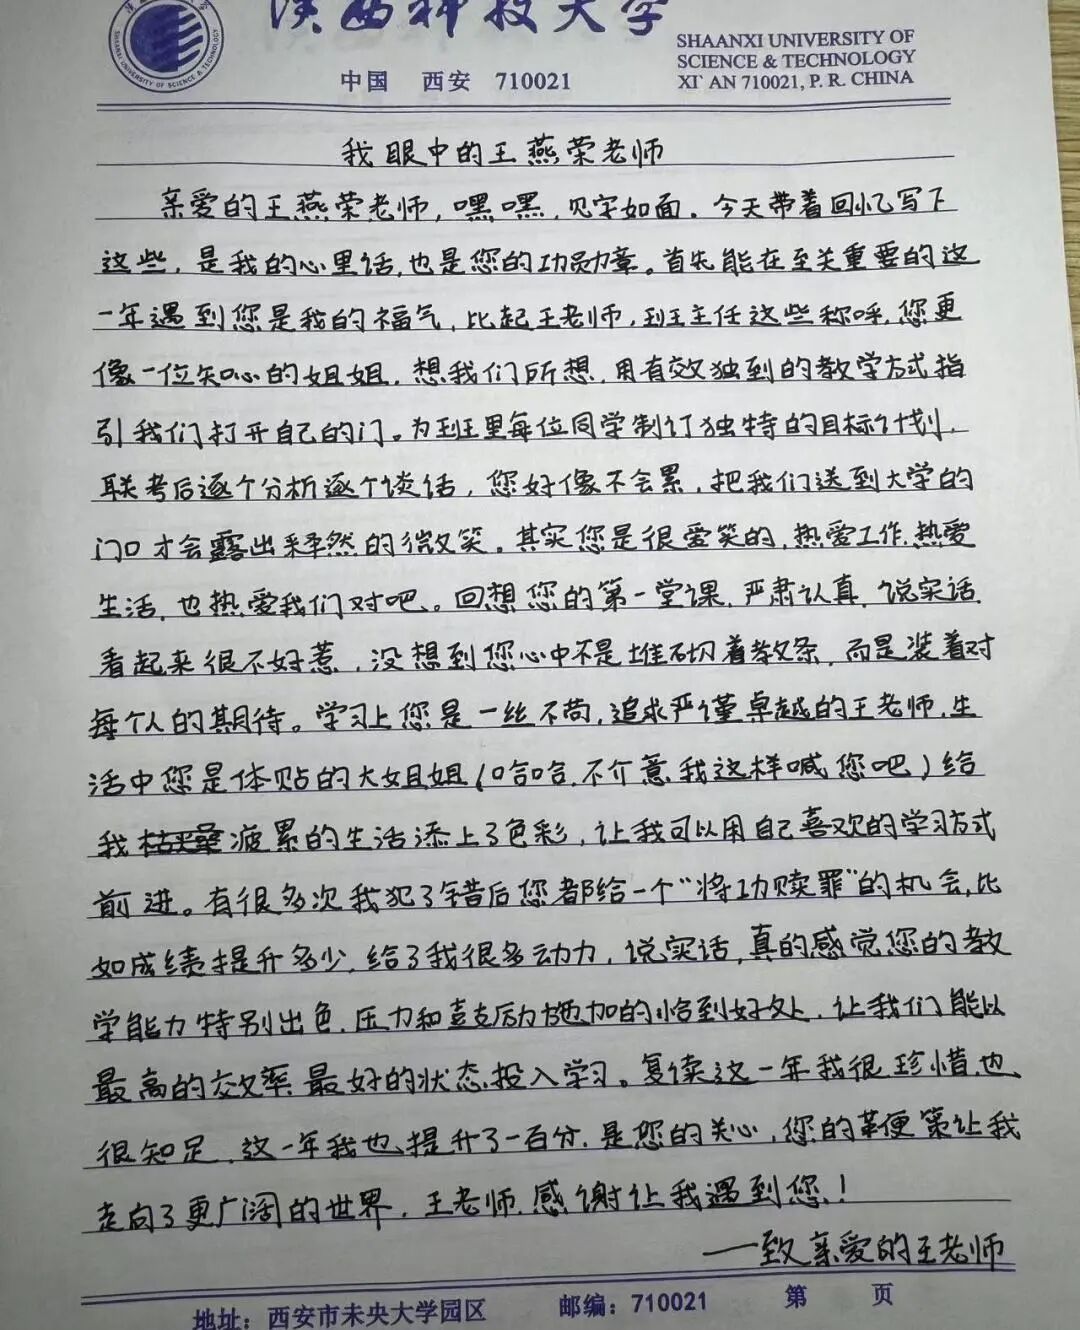 陕西科技大学
SHAANXI UNIVERSITY OF
SCIENCE & TECHNOLOGY
中国 西安 710021
XI' AN 710021, P. R. CHINA
SHAANXI UNIVERSITY OF SCIENCE & TECHNOLOGY
我眼中的王燕荣老师
亲爱的王燕荣老师,嘿嘿,见字如面。今天带着回忆写下
这些,是我的心里话,也是您的功勋章。首先能在至关重要的这
一年遇到您是我的福气,比起王老师,班主任这些称呼,您更
像一位知心的姐姐,想我们所想,用有效独到的教学方式指
引我们打开自己的门。为班里每位同学制订独特的目标计划,
联考后逐个分析逐个谈话,您好像不会累,把我们送到大学的
门口才会露出释然的微笑。其实您是很爱笑的,热爱工作,热爱
生活,也热爱我们对吧。回想您的第一堂课,严肃认真,说实话,
看起来很不好惹,没想到您心中不是堆砌着教条,而是装着对
每个人的期待。学习上您是一丝不苟,追求严谨卓越的王老师,生
活中您是体贴的大姐姐(哈哈,不介意我这样喊您吧)给
我疲累的生活添上了色彩,让我可以用自己喜欢的学习方式
前进。有很多次我犯了错后您都给一个“将功赎罪”的机会,比
如成绩提升多少,给了我很多动力,说实话,真的感觉您的教
学能力特别出色,压力和鼓励施加的恰到好处,让我们能以
最高的效率,最好的状态投入学习。复读这一年我很珍惜,也
很知足,这一年我也提升了一百分,是您的关心,您的革便策让我
走向了更广阔的世界,王老师,感谢让我遇到您!
——致亲爱的王老师
地址:西安市未央大学园区 邮编:710021 第 页